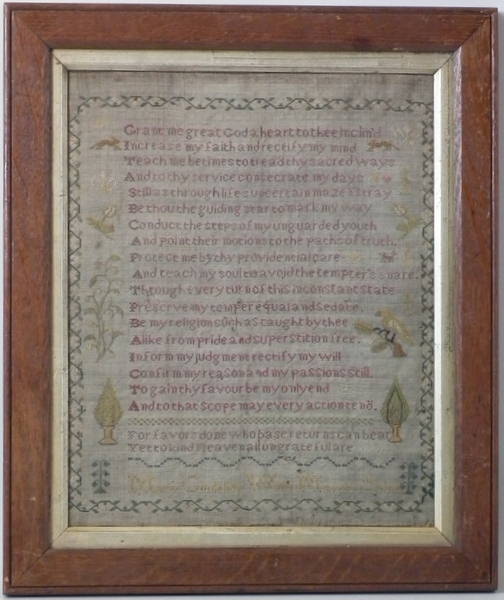 Grant me great God a heart to thee inclin'd
Increase my faith and rectify my mind
Teach me betimes to tread thy sacred ways
And to thy service consecrate my days
Still as through life's uncertain maze I stray
Be thou the guiding star to mark my way
Conduct the steps of my unguarded youth
And point their motions to the paths of truth.
Protect me by thy providential care
And teach my soul to avoid the tempter's snare.
Through every turn of this inconstant state
Preserve my temper equal and sedate.
Be my religion such as taught by thee
Alike from pride and superstition free.
Inform my judgment rectify my will
Confirm my reason and my passions still.
To gain thy favour be my only end
And to that scope may every action tend.
For favors done who base returns can bear
Yet to kind Heaven all ungrateful are